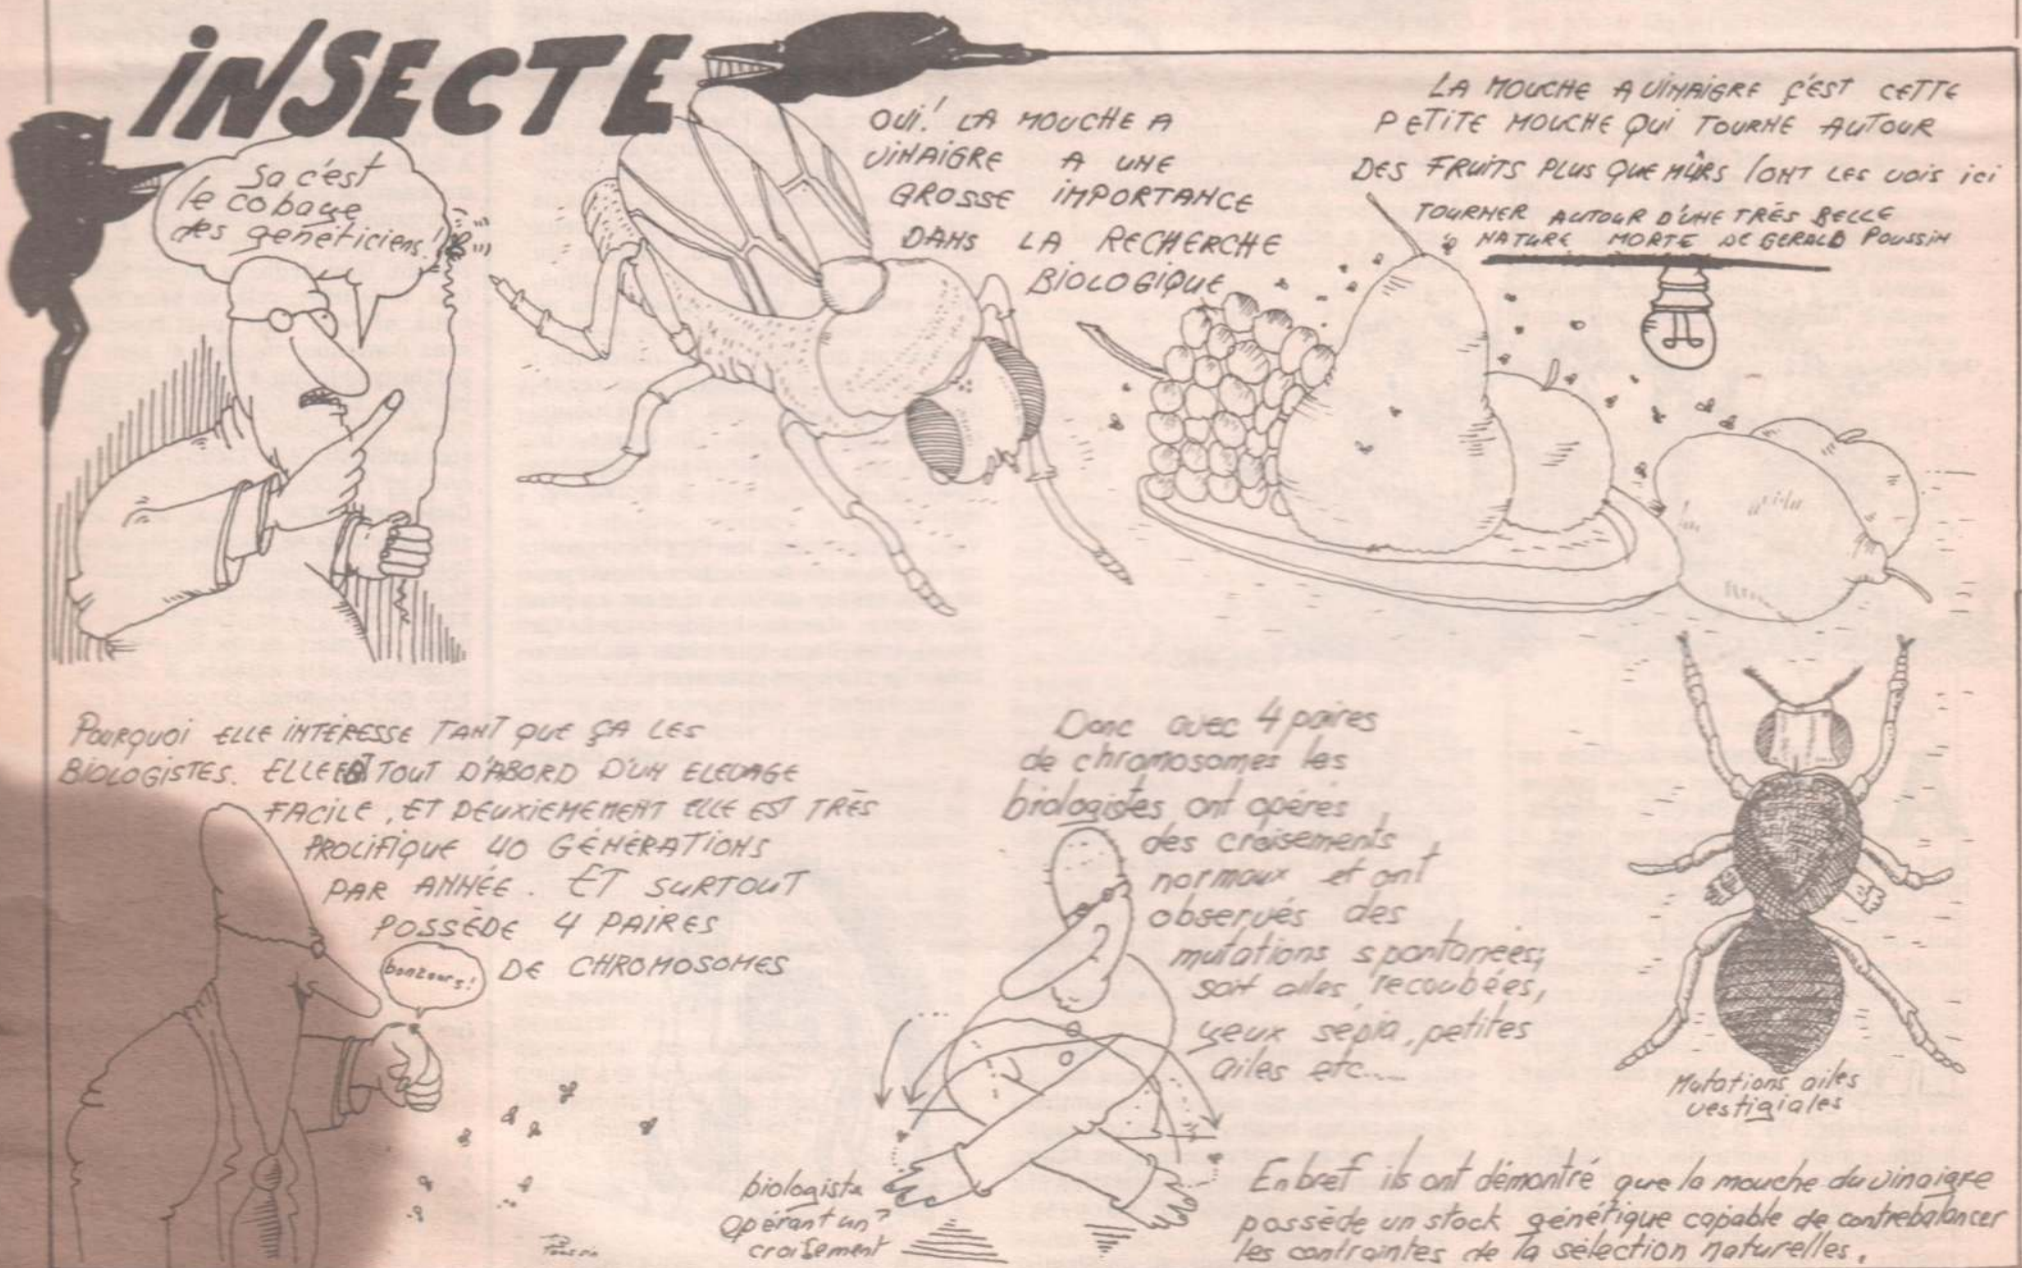 INSECTE
Sa c'est
le cobaye
des genéticiens!
OUI! LA MOUCHE A
VINAIGRE A UNE
GROSSE IMPORTANCE
DANS LA RECHERCHE
BIOLOGIQUE
LA MOUCHE A VINAIGRE C'EST CETTE
PETITE MOUCHE QUI TOURNE AUTOUR
DES FRUITS PLUS QUE MÛRS (ONT LES VOIS ICI
TOURNER AUTOUR D'UNE TRÈS BELLE
NATURE MORTE DE GERALD POUSSIN
POURQUOI ELLE INTÉRESSE TANT QUE ÇA LES
BIOLOGISTES. ELLE EST TOUT D'ABORD D'UN ELEVAGE
FACILE, ET DEUXIEMEMENT ELLE EST TRÈS
PROLIFIQUE 40 GÉNÉRATIONS
PAR ANNÉE. ET SURTOUT
POSSÈDE 4 PAIRES
DE CHROMOSOMES
bonzours!
Donc avec 4 paires
de chromosomes les
biologistes ont opérés
des croisements
normaux et ont
observés des
mutations spontanées;
soit ailes recoubées,
yeux sépia, petites
ailes etc....
biologiste
opérant un
croisement
Mutations ailes
vestigiales
En bref ils ont démontré que la mouche du vinaigre
possède un stock génétique capable de contrebalancer
les contraintes de la sélection naturelles.
Poussin